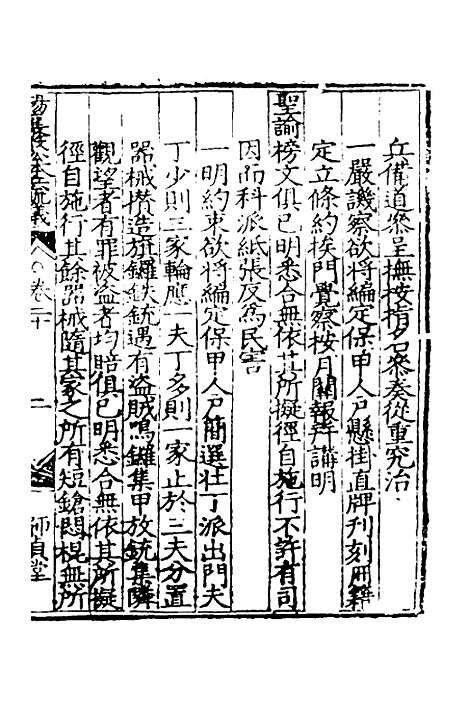 兵備道叅呈撫按指名叅奏從重究治
一嚴譏察欲將編定保甲人戶懸掛直牌刊刻册籍
定立條約挨門覺察按月開報幷講明
聖諭榜文俱已明悉合無依其所擬徑自施行不許有司
因而科派紙張反爲民害
一明約束欲將編定保甲人戶簡選壯丁派出門夫
丁少則三家輪應一夫丁多則一家止於三夫分置
器械攅造旗鑼鉄銃遇有盗賊鳴鑼集甲放銃集隣
觀望者有罪被盗者均賠俱已明悉合無依其所擬
徑自施行其餘器械隨其家之所有短鎗悶棍無所
卷二十
二
師貞堂